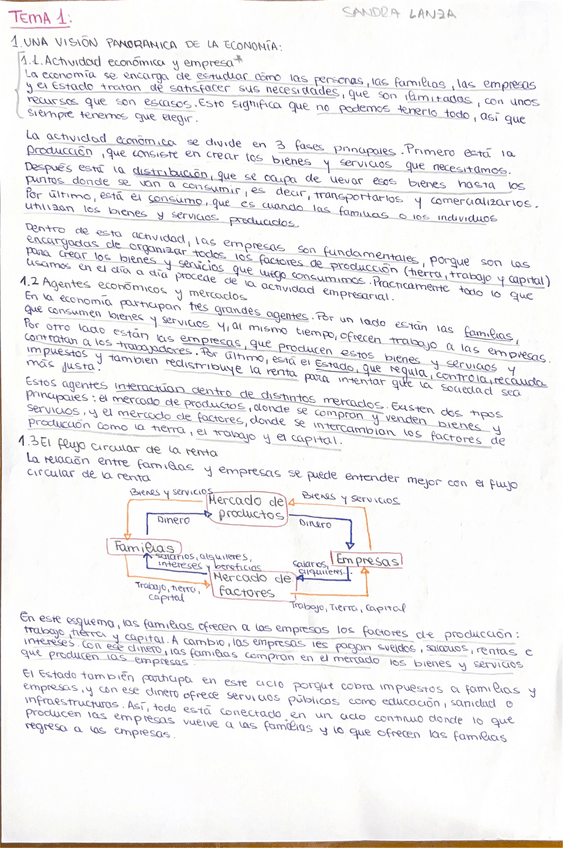 TEMA 1:
SANDRA LANZA
1. UNA VISIÓN PANORÁMICA DE LA ECONOMÍA:
1.1. Actividad económica y empresa*
La economía se encarga de estudiar cómo las personas, las familias, las empresas
y el Estado tratan de satisfacer sus necesidades, que son ilimitadas, con unos
recursos que son escasos. Esto significa que no podemos tenerlo todo, así que
siempre tenemos que elegir.
La actividad económica se divide en 3 fases principales. Primero está la
producción, que consiste en crear los bienes y servicios que necesitamos.
Después está la distribución, que se ocupa de llevar esos bienes hasta los
puntos donde se van a consumir, es decir, transportarlos y comercializarlos.
Por último, está el consumo, que es cuando las familias o los individuos
utilizan los bienes y servicios producidos.
Dentro de esta actividad, las empresas son fundamentales, porque son las
encargadas de organizar todos los factores de producción (tierra, trabajo y capital)
para crear los bienes y servicios que luego consumimos. Prácticamente todo lo que
usamos en el día a día procede de la actividad empresarial.
1.2 Agentes económicos y mercados
En la economía participan tres grandes agentes. Por un lado están las familias,
que consumen bienes y servicios y, al mismo tiempo, ofrecen trabajo a las empresas.
Por otro lado están las empresas, que producen estos bienes y servicios y
contratan a los trabajadores. Por último, está el Estado, que regula, controla, recauda
impuestos y también redistribuye la renta para intentar que la sociedad sea
más justa.
Estos agentes interactúan dentro de distintos mercados. Existen dos tipos
principales: el mercado de productos, donde se compran y venden bienes y
servicios, y el mercado de factores, donde se intercambian los factores de
producción como la tierra, el trabajo y el capital.
1.3 El flujo circular de la renta
La relación entre familias y empresas se puede entender mejor con el flujo
circular de la renta
Bienes y servicios
Mercado de
productos
Bienes y servicios
Dinero
Dinero
Familias
Empresas
salarios, alquileres,
intereses y beneficios
Salarios,
alquileres..
Mercado de
factores
Trabajo, tierra,
capital
Trabajo, Tierra, capital
En este esquema, las familias ofrecen a las empresas los factores de producción:
trabajo, tierra y capital. A cambio, las empresas les pagan sueldos, salarios, rentas e
intereses. Con ese dinero, las familias compran en el mercado los bienes y servicios
que producen las empresas.
El Estado también participa en este ciclo porque cobra impuestos a familias y
empresas, y con ese dinero ofrece servicios públicos como educación, sanidad o
infraestructuras. Así, todo está conectado en un ciclo continuo donde lo que
producen las empresas vuelve a las familias y lo que ofrecen las familias
regresa a las empresas.